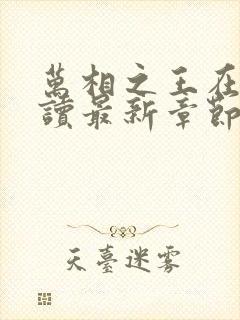 萬相之王在
讀最新章節
天臺迷霧